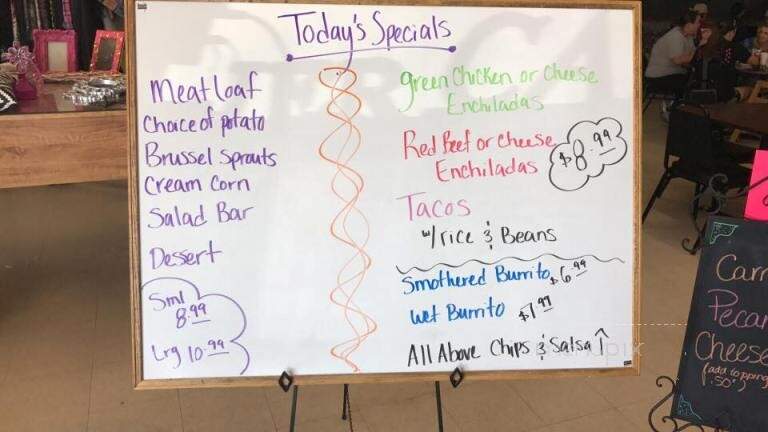 Today's Specials
Meatloaf
Choice of potato
Brussel Sprouts
Cream Corn
Salad Bar
Dessert
Sml
8.99
Lrg 10.99
Green Chicken or Cheese
Enchiladas
Red Beef or Cheese
Enchiladas
$8.99
Tacos
w/rice & Beans
Smothered Burrito $6.99
Wet Burrito $7.99
All Above Chips & Salsa ↑
Pecan
Cheese
(add topping
.50¢)